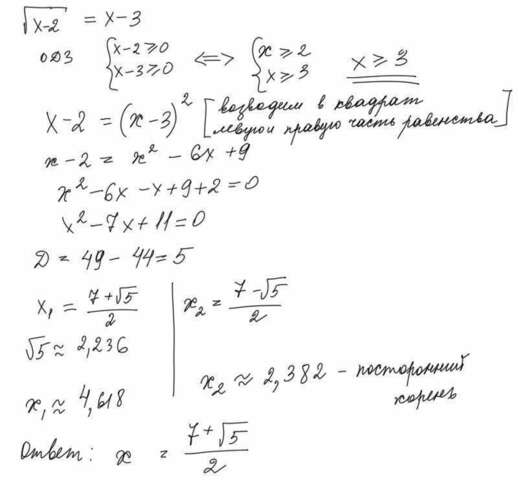 √x-2 = x-3
ОДЗ { x-2 ≥ 0 x-3 ≥ 0 <=> { x ≥ 2 x ≥ 3 x ≥ 3
x-2 = (x-3)² [возводим в квадрат левую и правую часть равенства]
x-2 = x² - 6x + 9
x² - 6x - x + 9 + 2 = 0
x² - 7x + 11 = 0
D = 49 - 44 = 5
x₁ = (7+√5)/2 | x₂ = (7-√5)/2
√5 ≈ 2,236
x₂ ≈ 2,382 - посторонний корень
x₁ ≈ 4,618
Ответ: x = (7+√5)/2